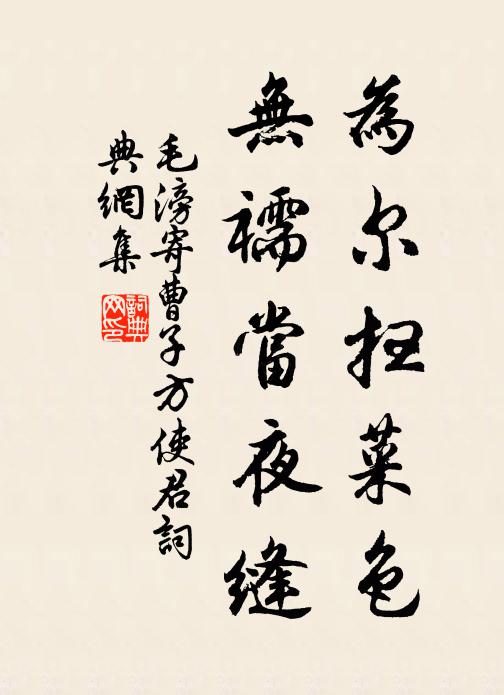 為尔抂菜色
無襦當夜縫
毛滂寄曹子方使君詞
典網集
詞典
网印